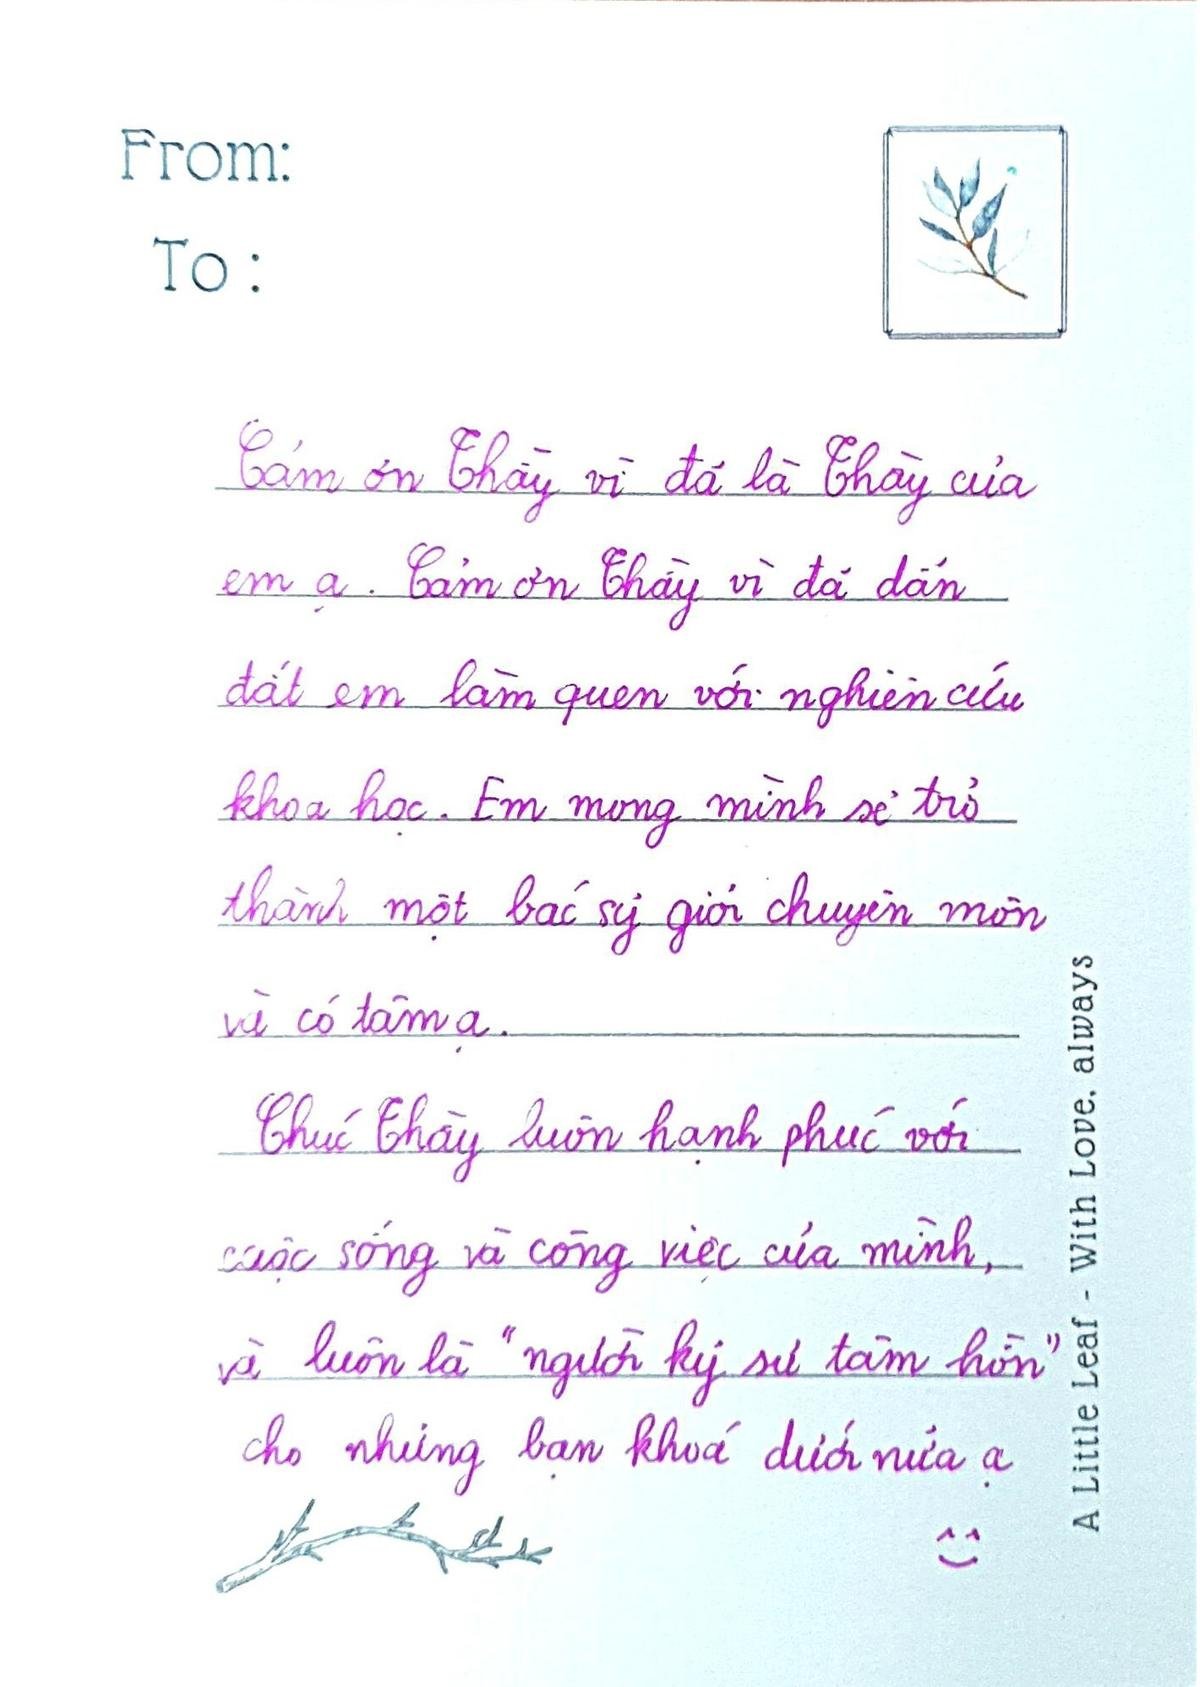 From:
To :
Cảm ơn Thầy vì đã là Thầy của
em ạ. Cảm ơn Thầy vì đã dẫn
dắt em làm quen với nghiên cứu
khoa học. Em mong mình sẽ trở
thành một bác sỹ giỏi chuyên môn
và có tâm ạ.
Chúc Thầy luôn hạnh phúc với
cuộc sống và công việc của mình,
và luôn là "người kỹ sư tâm hồn"
cho những bạn khoá dưới nữa ạ
A Little Leaf - With Love, always